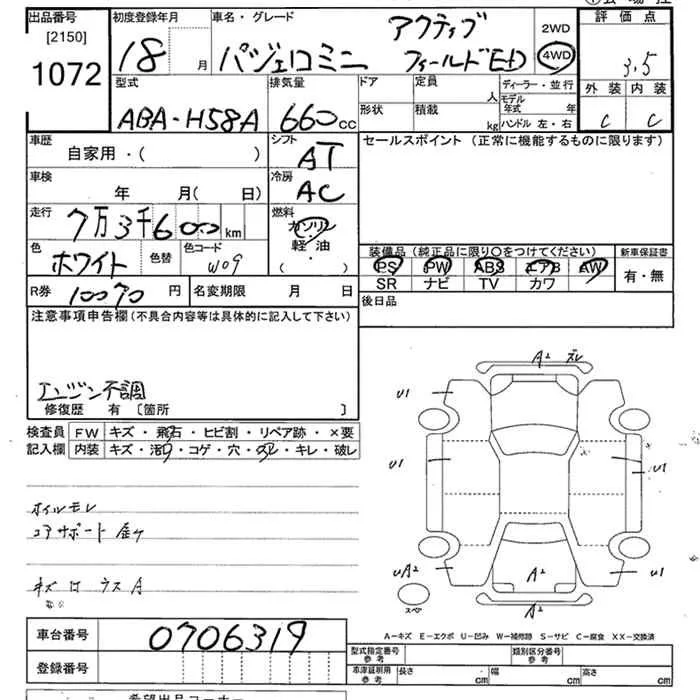 出品番号
[2150]
1072
初度登録年月
18月
車名・グレード
パジェロミニ
アクティブ
フィールドED
2WD
4WD
評価点
3.5
外装 内装
C C
型式
ABA-H58A
排気量
660cc
ドア
形状
定員 人
積載 kg
ディーラー・並行
モデル年式 年
ハンドル 左・右
車歴
自家用・( )
シフト
AT
セールスポイント (正常に機能するものに限ります)
車検
年 月(日)
冷房
AC
走行
7万3千600km
燃料
ガソリン
軽油
・
( )
色
ホワイト
色替
色コード
W09
装備品(純正品に限り○をつけてください)
新車保証書
PS PW ABS エアB AW
SR ナビ TV カワ
有・無
R券
10070円
名変期限 月 日
後日品
注意事項申告欄(不具合内容等は具体的に記入して下さい)
エンジン不調
修復歴 有 [箇所 ]
検査員
記入欄
FW キズ・飛石・ヒビ割・リペア跡・×要
内装 キズ・汚・コゲ・穴・スレ・キレ・破レ
A2 ズレ
U1
U1
U1
U1
UA2
A2
U1
A2
スペア
ホイルモレ
コアサポート
A
A-キズ E-エクボ U-凹み W-補修跡 S-サビ C-腐食 XX-交換済
車台番号
0706319
登録番号
型式指定番号
参考
類別区分番号
参考
車庫証明用
参考
長さ cm
幅 cm
高さ cm
希望出品コーナー